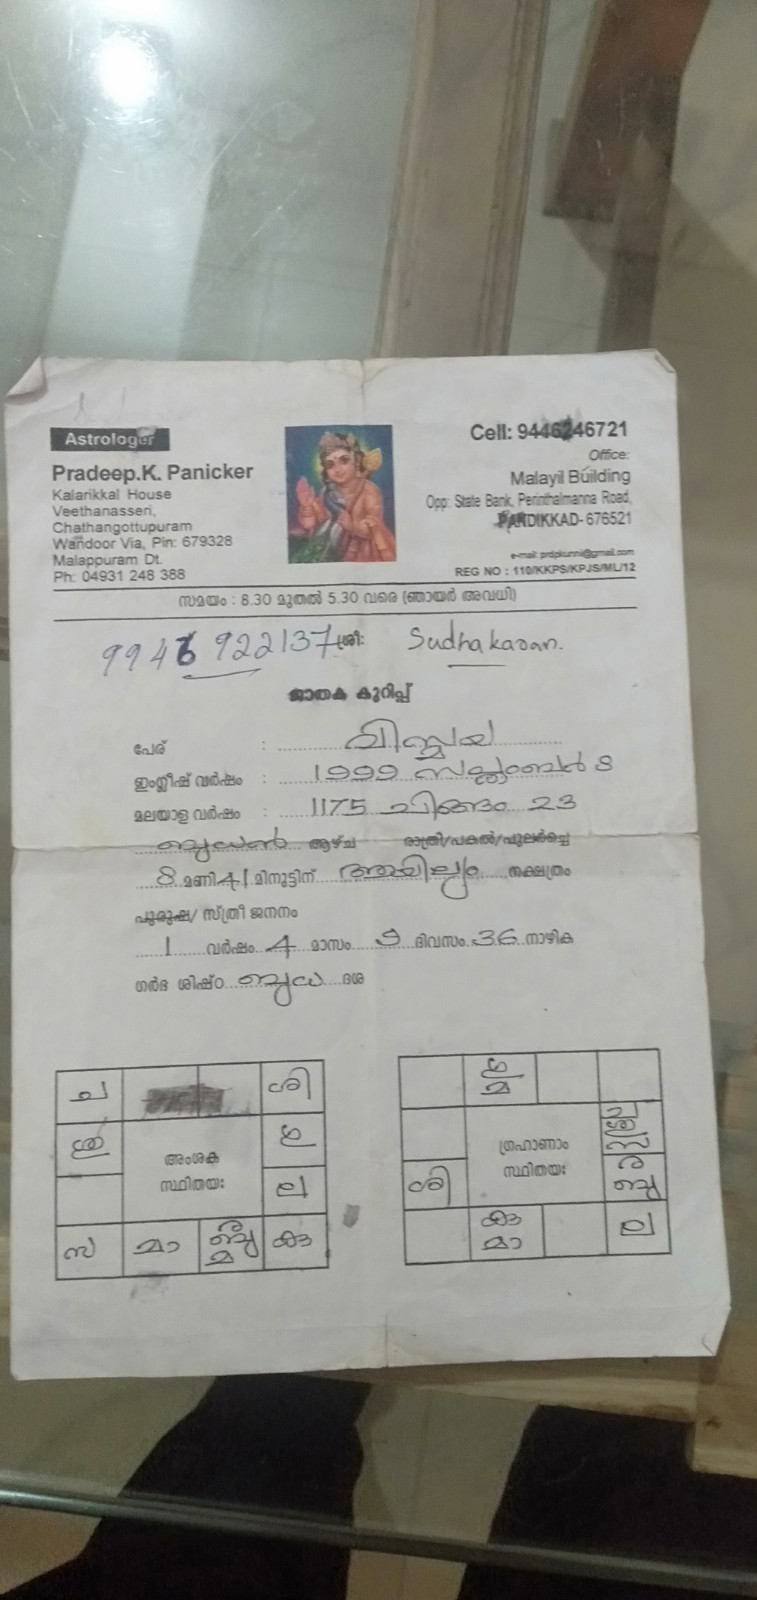 Astrologer
Pradeep.K. Panicker
Kalarikkal House
Veethanasseri,
Chathangottupuram
Wandoor Via, Pin: 679328
Malappuram Dt.
Ph: 04931 248 388
Cell: 9446246721
Office:
Malayil Building
Opp: State Bank, Perinthalmanna Road,
PANDIKKAD- 676521
e-mail: prdpkunnii@gmail.com
REG NO : 110/KKPS/KPJS/ML/12
സമയം : 8.30 മുതൽ 5.30 വരെ (ഞായർ അവധി)
9946 922137 ശ്രീ: Sudhakaran.
ജാതക കുറിപ്പ്
പേര് : വിസ്മയ
ഇംഗ്ലീഷ് വർഷം : 1999 സെപ്തംബർ 8
മലയാള വർഷം : 1175 ചിങ്ങം 23
ബുധൻ ആഴ്ച രാത്രി/പകൽ/പുലർച്ചെ
8 മണി 41 മിനുട്ടിന് ആയില്യം നക്ഷത്രം
പുരുഷ/ സ്ത്രീ ജനനം
1 വർഷം 4 മാസം 9 ദിവസം 36 നാഴിക
ഗർഭ ശിഷ്ഠം ബുധ ദശ
ച ശി
ഗു
അംശക
സ്ഥിതയഃ
ല
സ മാ മ കു
ഗു
മ
ച
ശു
സ
ഗ്രഹാണാം
സ്ഥിതയഃ
ശി ര
ബു
കു
മാ ല